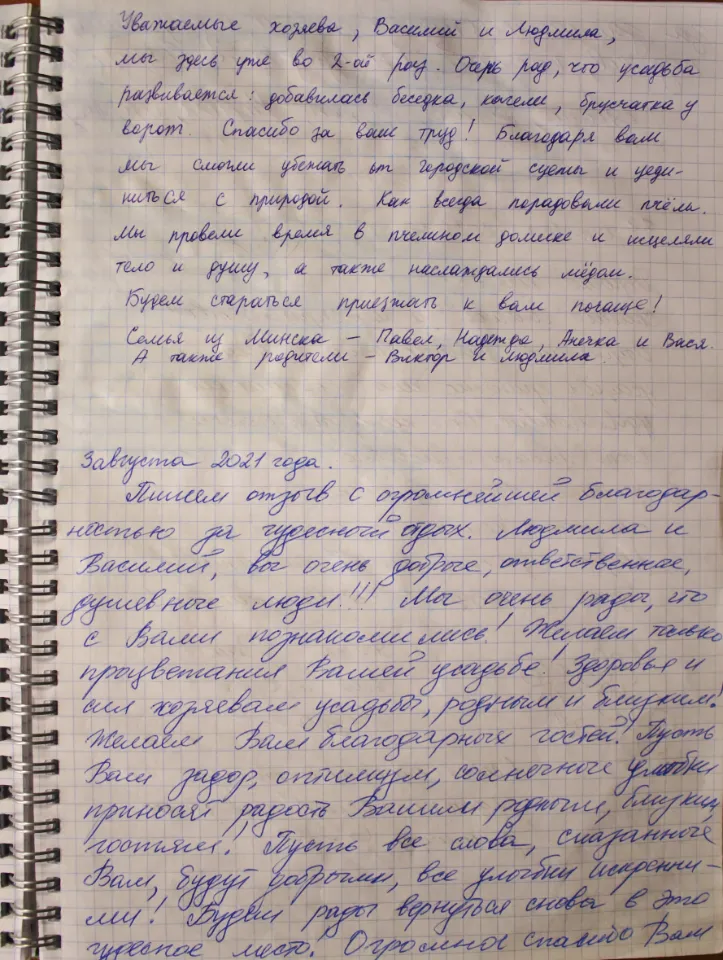 Уважаемые хозяева, Василий и Людмила,
мы здесь уже во 2-ой раз. Очень рад, что усадьба
развивается: добавилась беседка, качели, брусчатка у
ворот. Спасибо за ваш труд! Благодаря вам
мы смогли убежать от городской суеты и уеди-
ниться с природой. Как всегда порадовали пчёлы.
Мы провели время в пчелином домике и исцеляли
тело и душу, а также наслаждались мёдом.
Будем стараться приезжать к вам почаще!
Семья из Минска – Павел, Надежда, Анечка и Вася.
А также родители – Виктор и Людмила.
3 августа 2021 года.
Пишем отзыв с огромнейшей благодар-
ностью за чудесный отдых. Людмила и
Василий, вы очень добрые, ответственные,
душевные люди!!! Мы очень рады, что
с Вами познакомились! Желаем только
процветания Вашей усадьбе! Здоровья и
сил хозяевам усадьбы, родным и близким!
Желаем Вам благодарных гостей! Пусть
Ваш задор, оптимизм, солнечные улыбки
приносят радость Вашим родным, близким,
гостям! Пусть все слова, сказанные
Вам, будут добрыми, все улыбки искренни-
ми! Будем рады вернуться снова в это
чудесное место! Огромное спасибо Вам